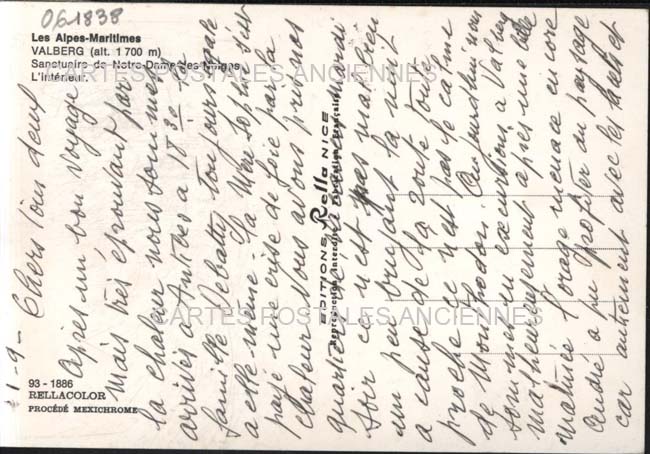 061838
Les Alpes-Maritimes
VALBERG (alt. 1 700 m)
Sanctuaire de Notre-Dame des Neiges
L'intérieur.
CARTES POSTALES ANCIENNES
1-9- Chers tous deux
après un bon voyage
mais très éprouvant par
la chaleur nous sommes
arrivés à Antibes à 18 30 la
famille Debatty toujours égale
à elle même la Mère Sophie s'est
payé une crise de foie par la
chaleur Nous avons pris nos
quartiers
soir ce n'est pas mal bien
un peu bruyant la nuit
à cause de la route toute
proche ce n'est pas le calme
de Aujourd'hui nous
sommes en excursions à Valberg
malheureusement après une belle
matinée l'orage menace encore
André a pu profiter du paysage
car autrement avec les et
EDITIONS Rella NICE
Reproduction interdite
CARTES POSTALES ANCIENNES
93 - 1886
RELLACOLOR
PROCÉDÉ MEXICHROME